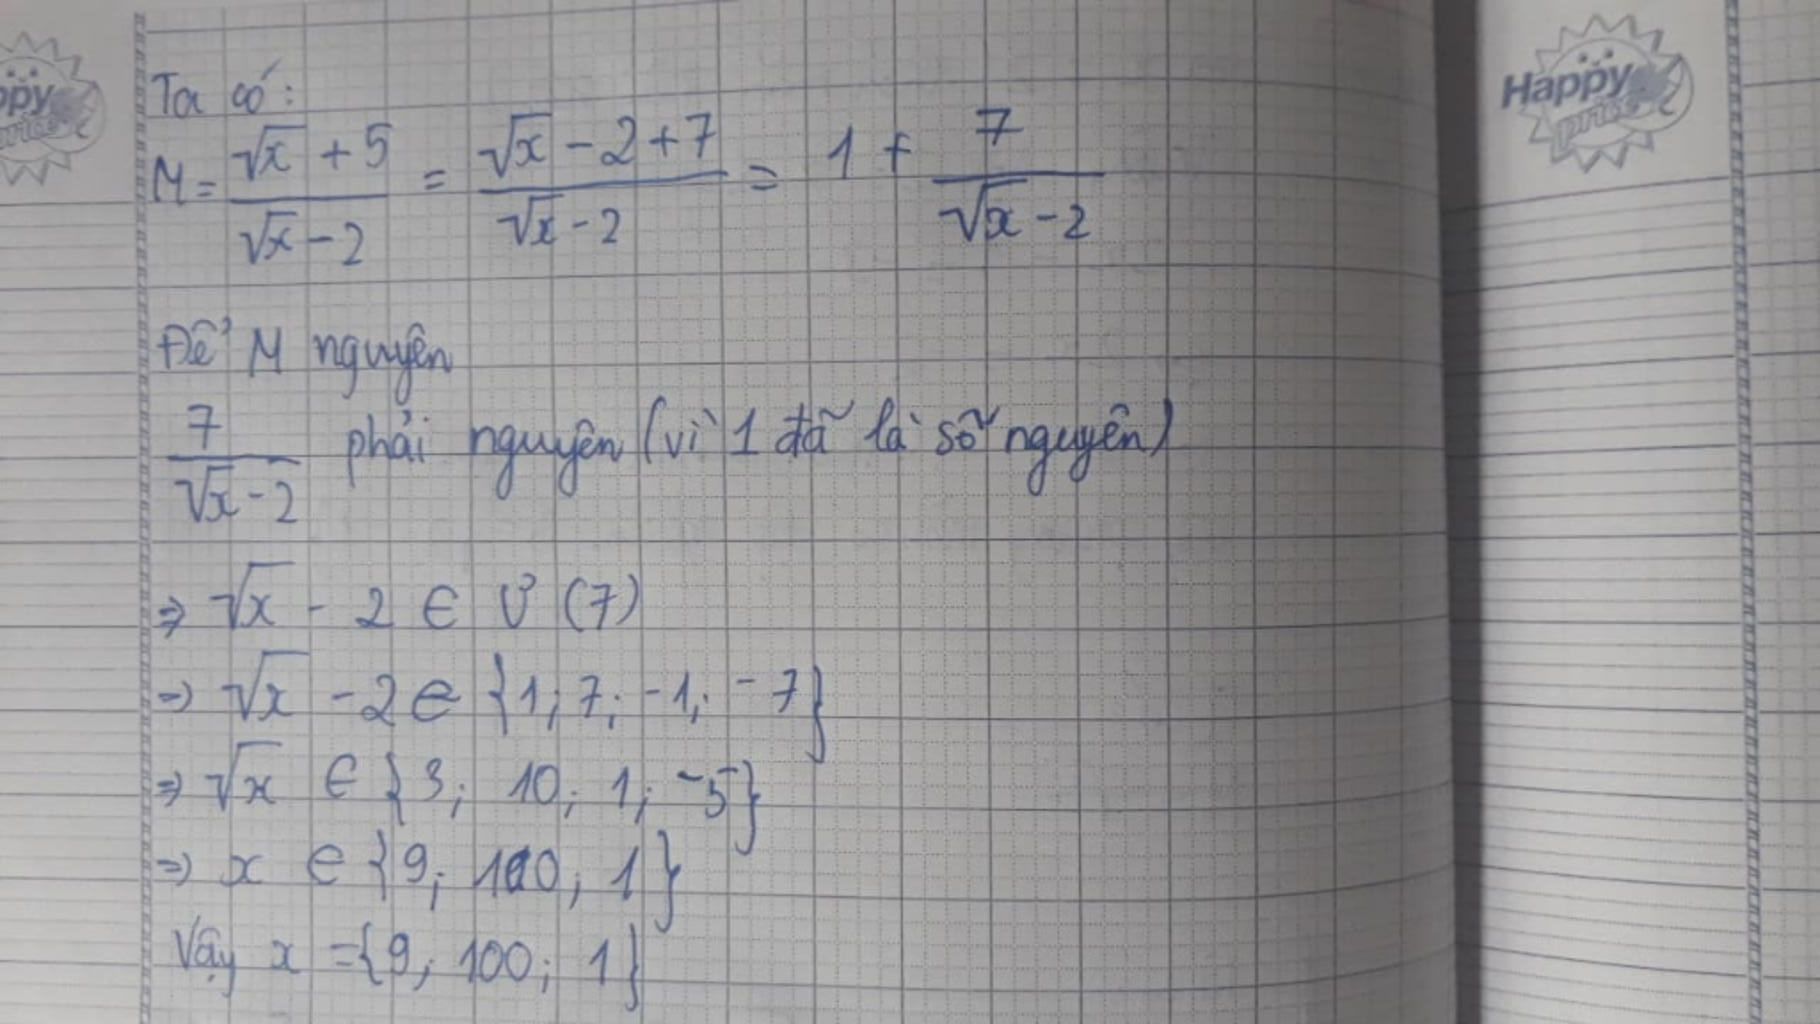 Happy
price
Ta có:
M = (√x + 5)/(√x - 2) = (√x - 2 + 7)/(√x - 2) = 1 + 7/(√x - 2)
Để M nguyên
7/(√x - 2) phải nguyên (vì 1 đã là số nguyên)
⇒ √x - 2 ∈ Ư (7)
⇒ √x - 2 ∈ {1; 7; -1; -7}
⇒ √x ∈ {3; 10; 1; -5}
⇒ x ∈ {9; 100; 1}
Vậy x = {9; 100; 1}
ppy
price